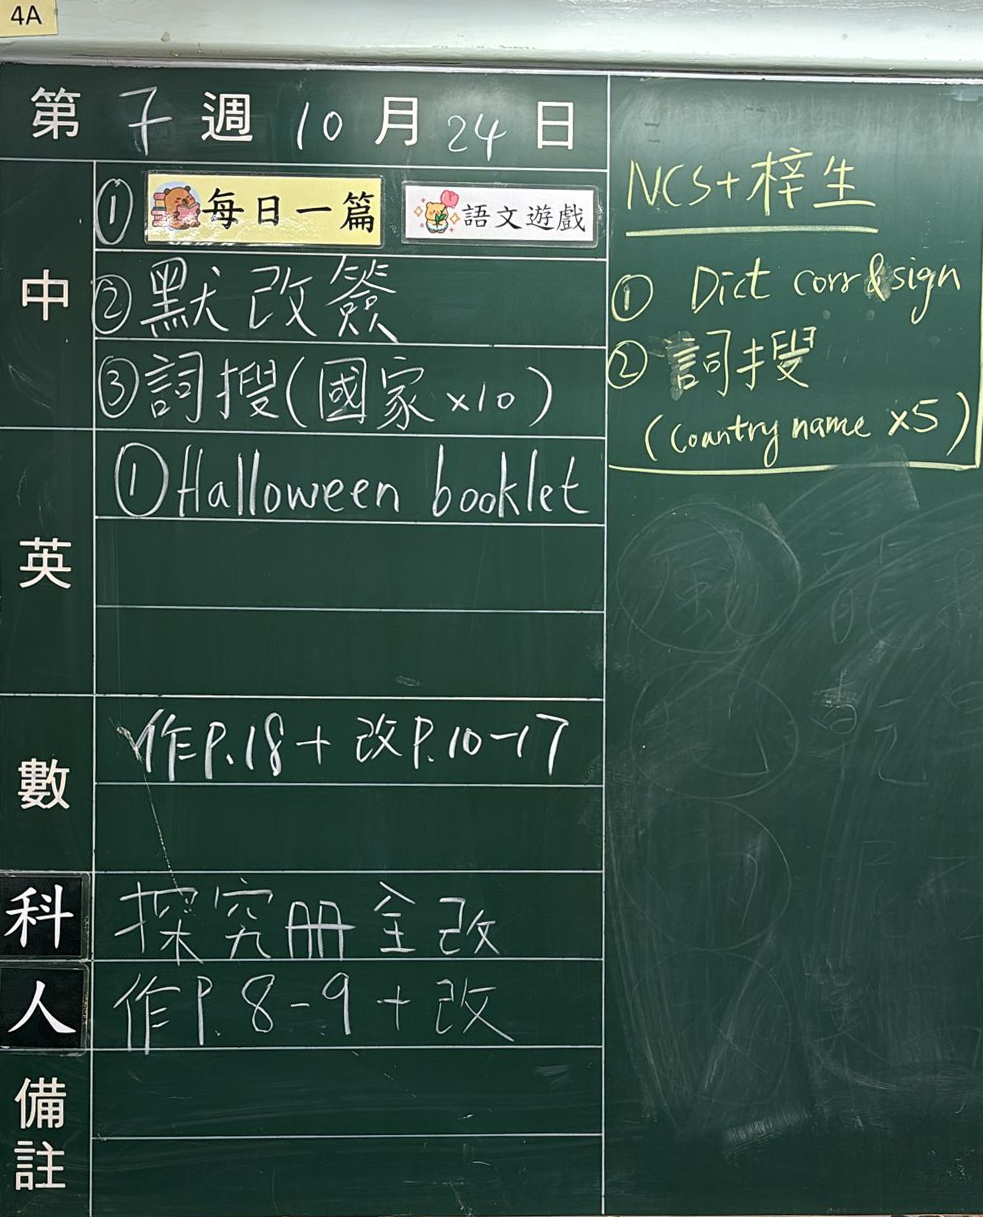 4A
第 7 週 10 月 24 日
中
① 每日一篇 語文遊戲
② 默改簽
③ 詞搜(國家×10)
英
① Halloween booklet
數
作P.18 + 改P.10-17
科
探究冊全改
人
作P.8-9 + 改
備註
NCS+梓生
① Dict corr & sign
② 詞搜
(Country name ×5)